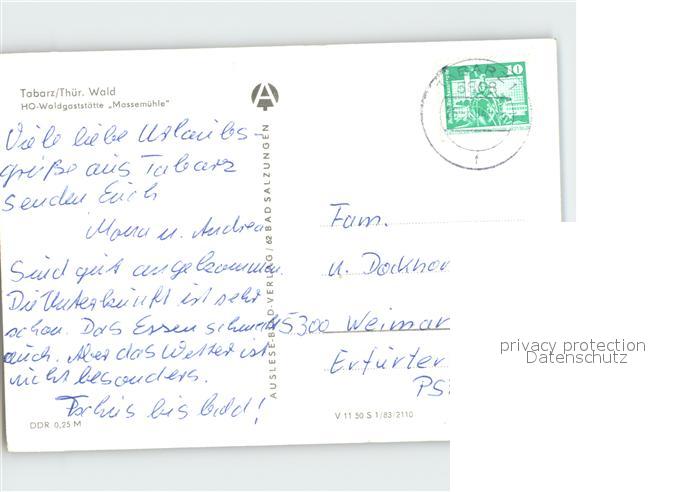 Tabarz/Thür. Wald
HO-Waldgaststätte „Massemühle"
Viele liebe Urlaubs-
grüße aus Tabarz
senden Euch
u. Andrea
Sind gut angekommen.
Die Unterkunft ist sehr
schön. Das Essen schmeckt
auch. Aber das Wetter ist
nicht besonders.
Tschüs bis bald!
DDR 0,25 M
AUSLESE-BILD-VERLAG / 62 BAD SALZUNGEN
A
10
TABARZ
Fam.
u. Dockhor
5300 Weimar
Erfurter
PS
V 11 50 S 1/83/2110
privacy protection
Datenschutz